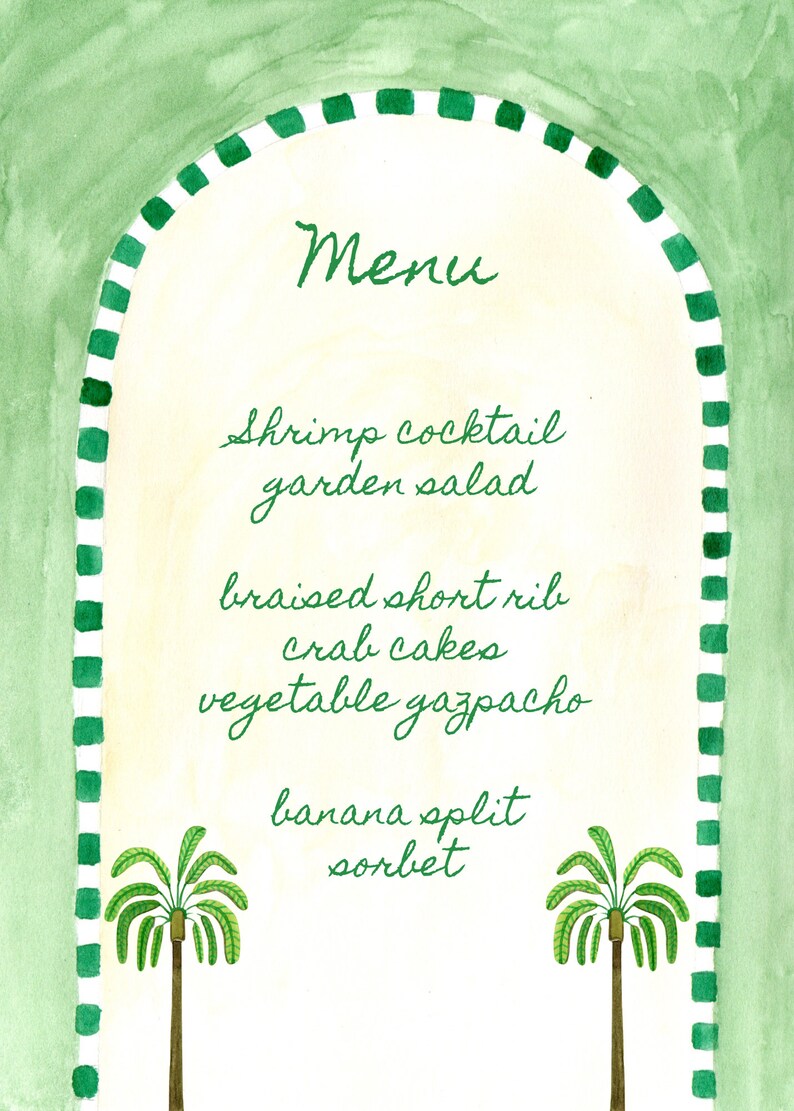 Menu
Shrimp cocktail
garden salad
braised short rib
crab cakes
vegetable gazpacho
banana split
sorbet